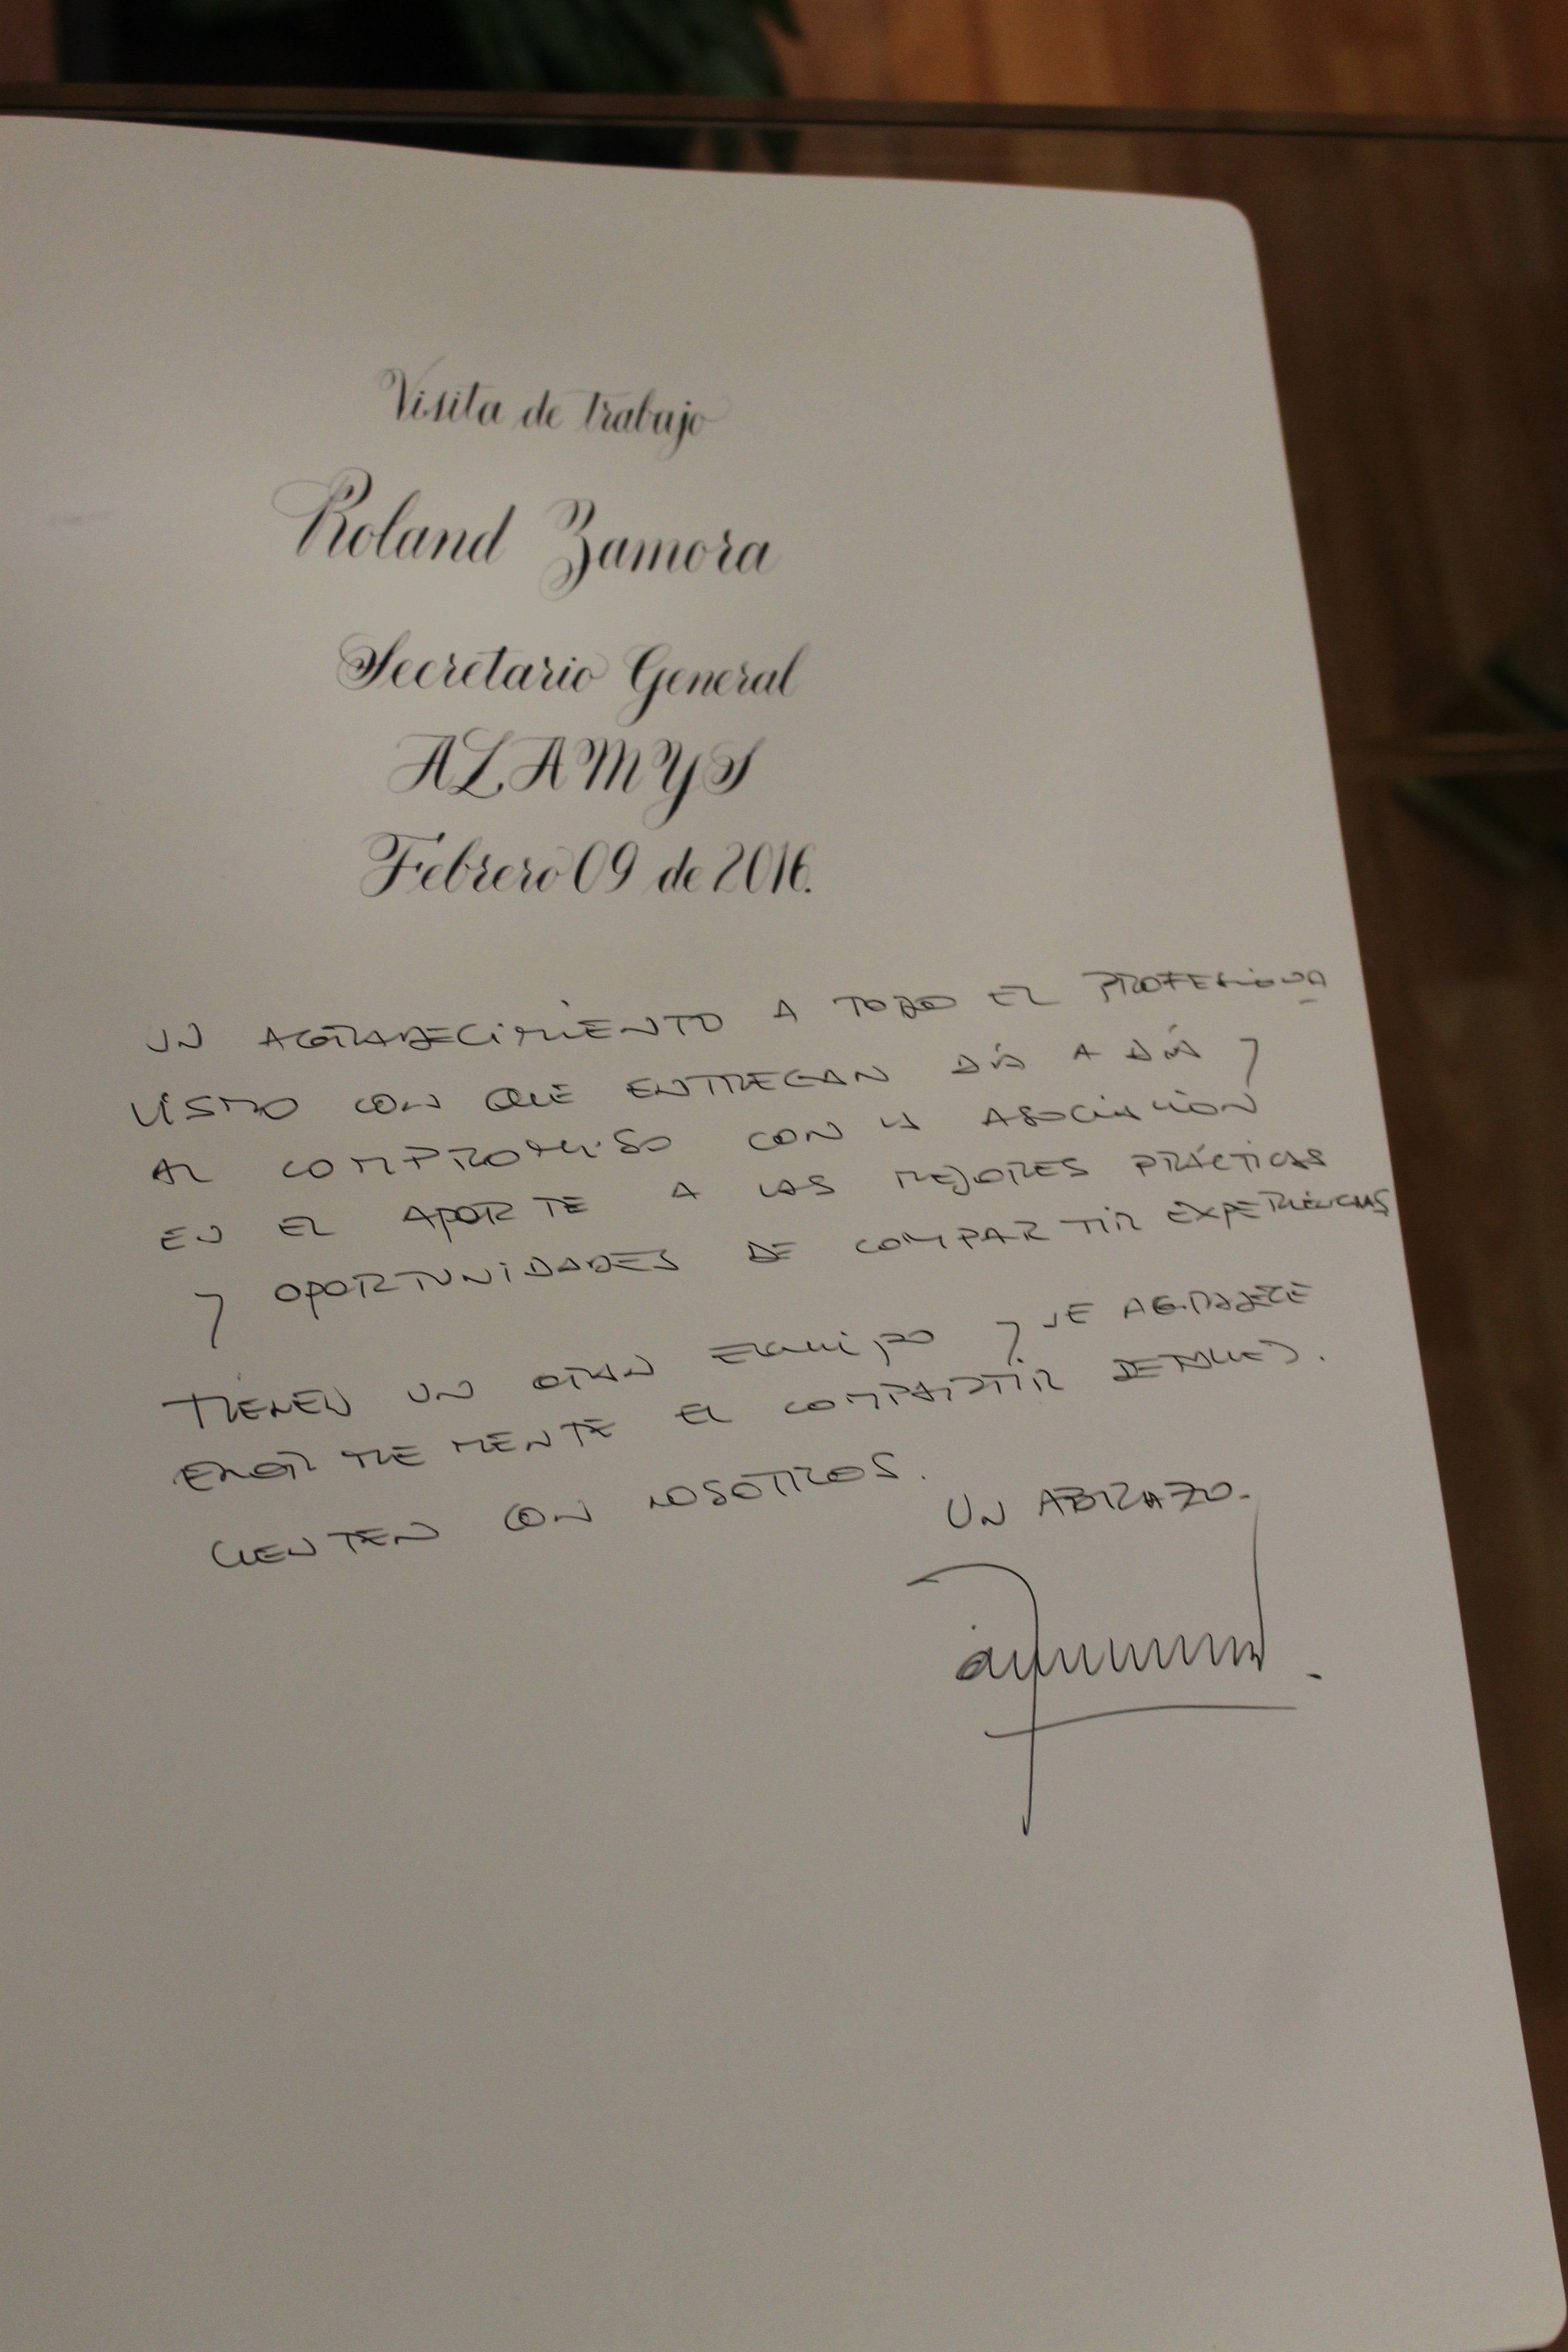 Visita de Trabajo
Roland Zamora
Secretario General
ALAMYS
Febrero 09 de 2016.
UN AGRADECIMIENTO A TODO EL PROFESIONA
LISMO CON QUE ENTREGAN DÍA A DÍA Y
AL COMPROMISO CON LA ASOCIACIÓN
EN EL APORTE A LAS MEJORES PRÁCTICAS
Y OPORTUNIDADES DE COMPARTIR EXPERIENCIAS
TIENEN UN GRAN EQUIPO Y SE AGRADECE
ENORMEMENTE EL COMPARTIR DETALLES.
CUENTEN CON NOSOTROS.
UN ABRAZO.